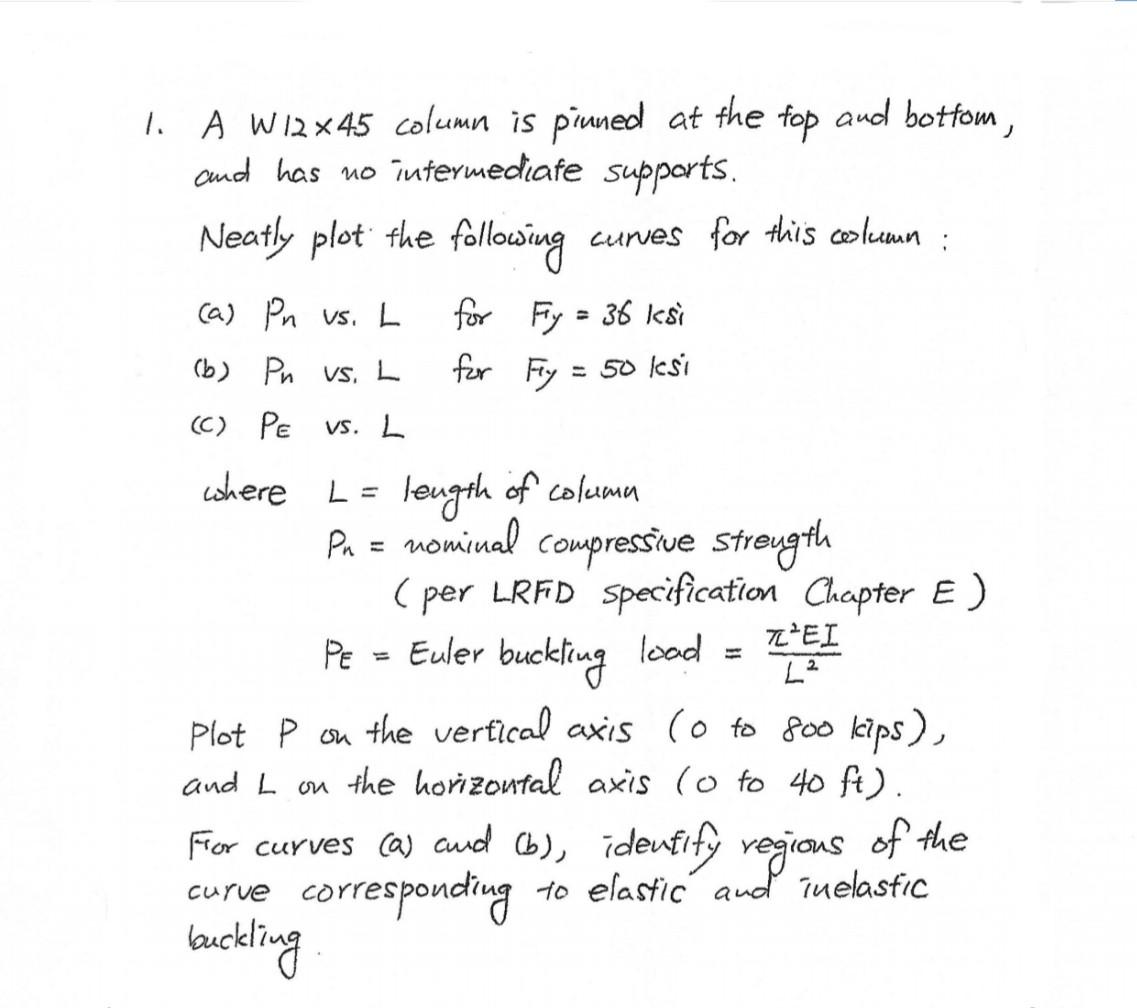 1. A W12x45 column is pinned at the top and bottom,
and has no intermediate supports.
Neatly plot the following curves for this column :
(a) Pn vs. L for Fy = 36 ksi
(b) Pn vs. L for Fy = 50 ksi
(c) PE vs. L
where L = length of column
Pn = nominal compressive strength
(per LRFD specification Chapter E)
PE = Euler buckling load = π²EI / L²
Plot P on the vertical axis (0 to 800 kips),
and L on the horizontal axis (0 to 40 ft).
For curves (a) and (b), identify regions of the
curve corresponding to elastic and inelastic
buckling.